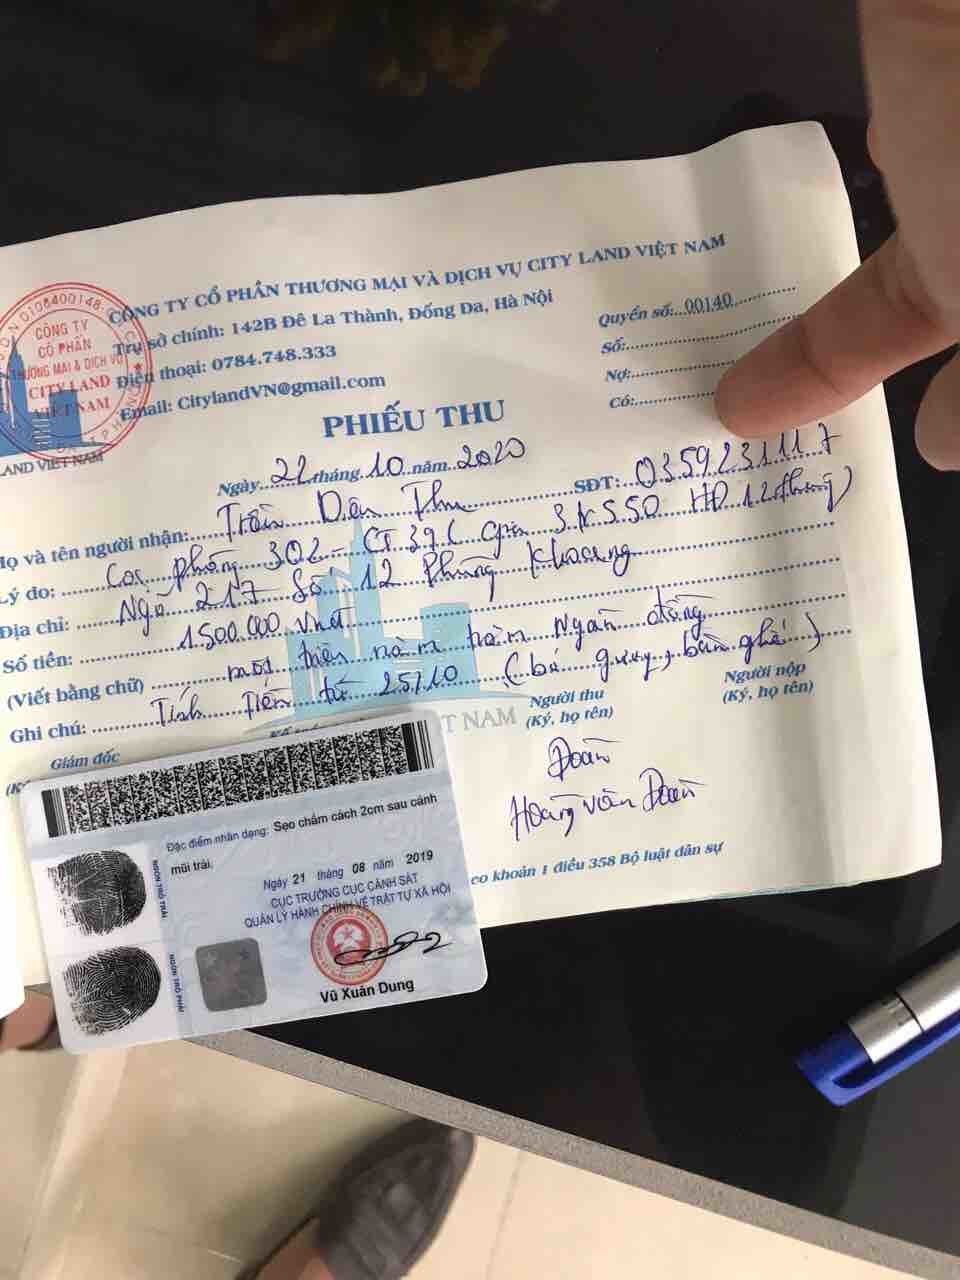 CÔNG TY CỔ PHẦN THƯƠNG MẠI VÀ DỊCH VỤ CITY LAND VIỆT NAM
Trụ sở chính: 142B Đê La Thành, Đống Đa, Hà Nội
Điện thoại: 0784.748.333
Email: CitylandVN@gmail.com
Quyển số:...00140
Số:
Nợ:
Có:
0108400148
CÔNG TY
CỔ PHẦN
THƯƠNG MẠI & DỊCH VỤ
CITY LAND
VIỆT NAM
LAND VIỆT NAM
PHIẾU THU
Ngày 22 tháng 10 năm 2020
Họ và tên người nhận: Trần Dân Thu SĐT: 0359231117
Lý do: Cọc phòng 302 - CT 39 ( giá 3tr550 HĐ 12 tháng)
Địa chỉ: Ngõ 217 Số 12 Phùng Khoang
Số tiền: 1500.000 vnđ
(Viết bằng chữ) một triệu năm trăm Ngàn đồng
Ghi chú: Tính Tiền từ 25/10 (bỏ bàn ghế)
Giám đốc
VIỆT NAM
Người thu
(Ký, họ tên)
Người nộp
(Ký, họ tên)
Đoàn
Hoàng Văn Đoàn
khoản 1 điều 358 Bộ luật dân sự
Đặc điểm nhân dạng: Sẹo chấm cách 2cm sau cánh
mũi trái.
Ngày 21 tháng 08 năm 2019
CỤC TRƯỞNG CỤC CẢNH SÁT
QUẢN LÝ HÀNH CHÍNH VỀ TRẬT TỰ XÃ HỘI
NGÓN TRỎ TRÁI
NGÓN TRỎ PHẢI
Vũ Xuân Dung